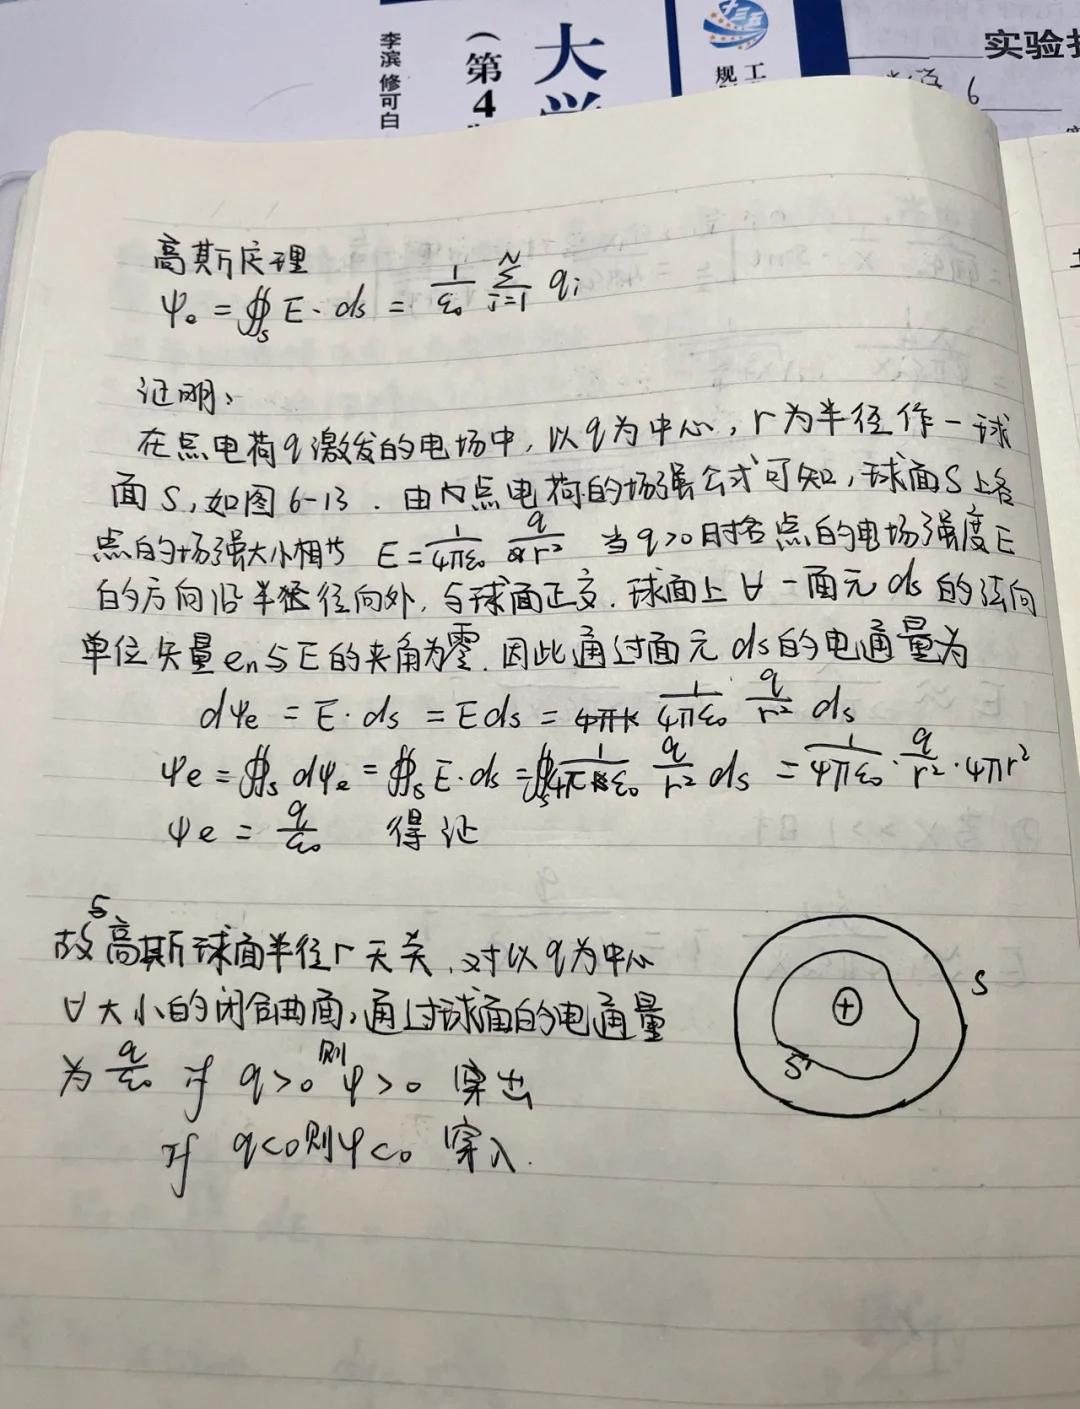 李滨 修可白
（第4
大学
十三五
规 工
实验
6
高斯定理
Ψₑ = ∯ₛ E · ds = 1/ε₀ Σᵢ₌₁ᴺ qᵢ
证明:
在点电荷q激发的电场中, 以q为中心, r为半径作一球
面S, 如图6-13. 由点电荷的场强公式可知, 球面S上各
点的场强大小相等 E = 1/4πε₀ q/r² 当q>0时各点的电场强度E
的方向沿半径向外, 与球面正交. 球面上∀一面元ds的法向
单位矢量eₙ与E的夹角为零. 因此通过面元ds的电通量为
dΨe = E · ds = Eds = 1/4πε₀ q/r² ds
Ψe = ∯ₛ dΨₑ = ∯ₛ E · ds = ∯ₛ 1/4πε₀ q/r² ds = 1/4πε₀ · q/r² · 4πr²
Ψe = q/ε₀ 得证
故与高斯球面半径r无关, 对以q为中心
∀大小的闭合曲面, 通过球面的电通量
为 q/ε₀ if q>0 则 Ψ>0 穿出
if q<0则Ψ<0 穿入.
S
S'
+